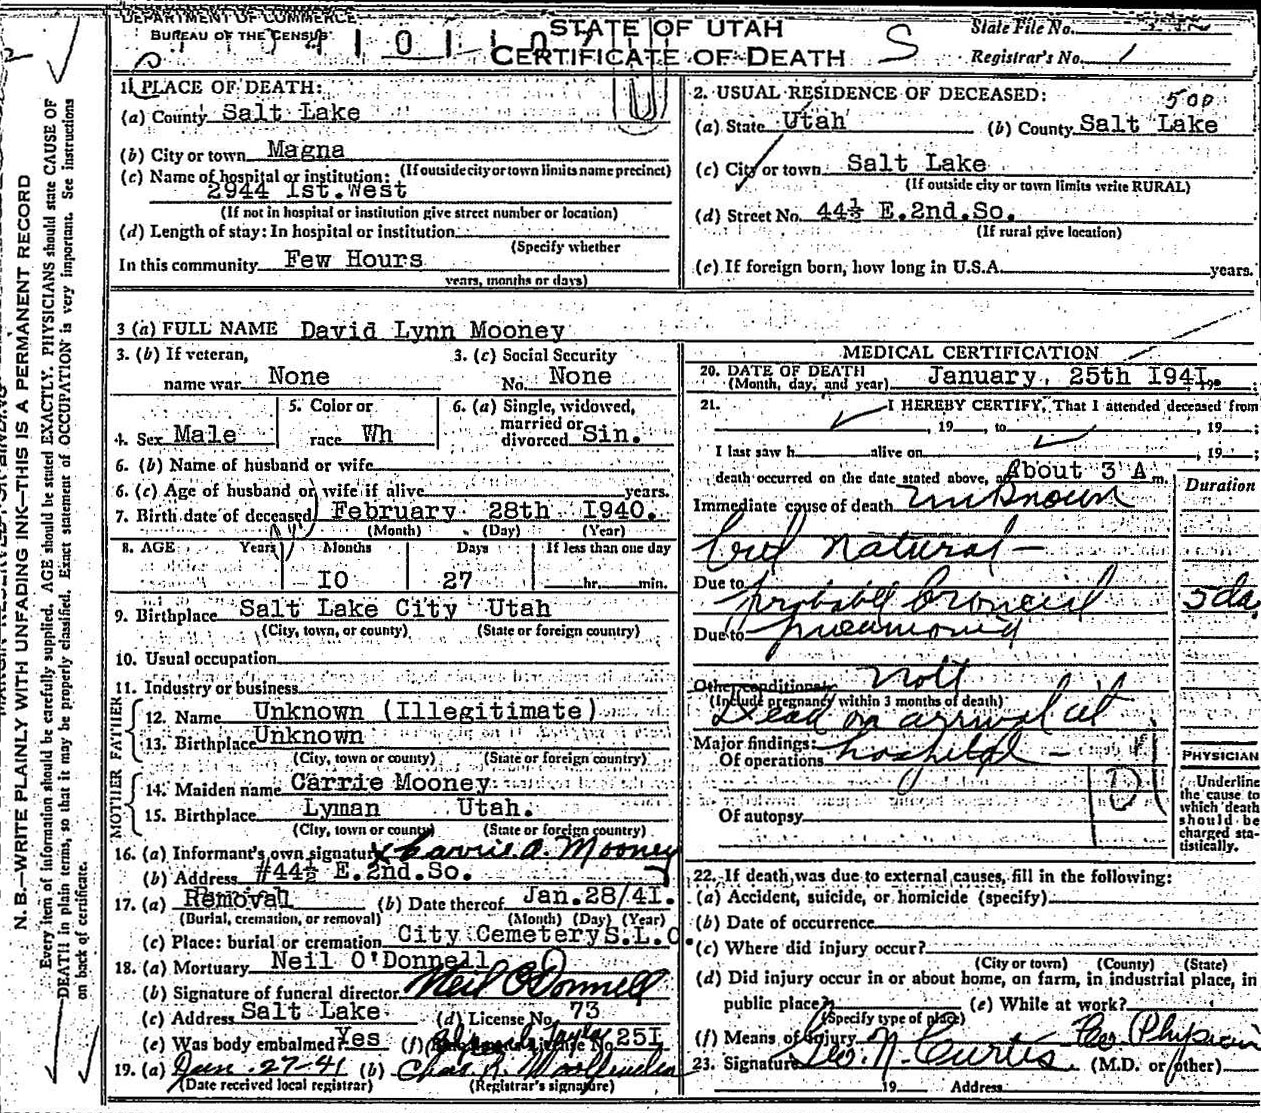 DEPARTMENT OF COMMERCE
BUREAU OF THE CENSUS
STATE OF UTAH
CERTIFICATE OF DEATH
S
State File No.
Registrar's No. 1
1. PLACE OF DEATH:
(a) County Salt Lake
(b) City or town Magna
(If outside city or town limits name precinct)
(c) Name of hospital or institution:
2944 Ist.West
(If not in hospital or institution give street number or location)
(d) Length of stay: In hospital or institution
(Specify whether
In this community Few Hours
years, months or days)
2. USUAL RESIDENCE OF DECEASED:
500
(a) State Utah (b) County Salt Lake
(c) City or town Salt Lake
(If outside city or town limits write RURAL)
(d) Street No. 44½ E.2nd.So.
(If rural give location)
(e) If foreign born, how long in U.S.A. years.
3 (a) FULL NAME David Lynn Mooney
3. (b) If veteran, name war None
3. (c) Social Security No. None
4. Sex Male
5. Color or race Wh
6. (a) Single, widowed, married or divorced Sin.
6. (b) Name of husband or wife
6. (c) Age of husband or wife if alive years.
7. Birth date of deceased February 28th I940.
(Month) (Day) (Year)
8. AGE Years Months Days If less than one day
I0 27 hr. min.
9. Birthplace Salt Lake City Utah
(City, town, or county) (State or foreign country)
10. Usual occupation
11. Industry or business
FATHER
12. Name Unknown (Illegitimate)
13. Birthplace Unknown
(City, town, or county) (State or foreign country)
MOTHER
14. Maiden name Carrie Mooney
15. Birthplace Lyman Utah.
(City, town or county) (State or foreign country)
16. (a) Informant's own signature x Carrie A. Mooney
(b) Address #44½ E.2nd.So.
17. (a) Removal (b) Date thereof Jan.28/4I.
(Burial, cremation, or removal) (Month) (Day) (Year)
(c) Place: burial or cremation City Cemetery S.L.C.
18. (a) Mortuary Neil O'Donnell
(b) Signature of funeral director Neil O'Donnell
(c) Address Salt Lake (d) License No. 73
(e) Was body embalmed? Yes (f) License No. 25I
19. (a) Jan-27-41 (b) Chas. R.
(Date received local registrar) (Registrar's signature)
MEDICAL CERTIFICATION
20. DATE OF DEATH
(Month, day, and year) January, 25th I94I, 19
21. I HEREBY CERTIFY, That I attended deceased from
, 19 , to , 19 ;
I last saw h alive on , 19 ;
death occurred on the date stated above, at About 3 A m.
Duration
Immediate cause of death unknown
but natural -
Due to probably broncial 5 da
Due to pneumonia
Other conditions
(Include pregnancy within 3 months of death)
Dead on arrival at
Major findings: hospital -
Of operations
PHYSICIAN
Underline the cause to which death should be charged statistically.
Of autopsy
22. If death was due to external causes, fill in the following:
(a) Accident, suicide, or homicide (specify)
(b) Date of occurrence
(c) Where did injury occur?
(City or town) (County) (State)
(d) Did injury occur in or about home, on farm, in industrial place, in
public place? (e) While at work?
(Specify type of place)
(f) Means of injury Co Physician
23. Signature Geo. N. Curtis (M.D. or other)
19 Address
N. B.—WRITE PLAINLY WITH UNFADING INK—THIS IS A PERMANENT RECORD
Every item of information should be carefully supplied. AGE should be stated EXACTLY. PHYSICIANS should state CAUSE OF
DEATH in plain terms, so that it may be properly classified. Exact statement of OCCUPATION is very important. See instructions
on back of certificate.